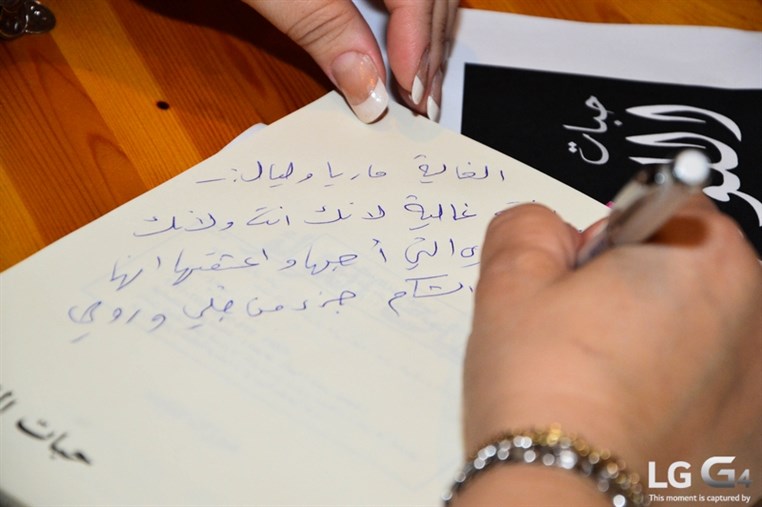 حبات
الغالية ماريا وليال :
غالية لانك انت ولانك
التي أحبها واعشقها انها
الشام جزء من قلبي وروحي
حبات
LG G4
This moment is captured by